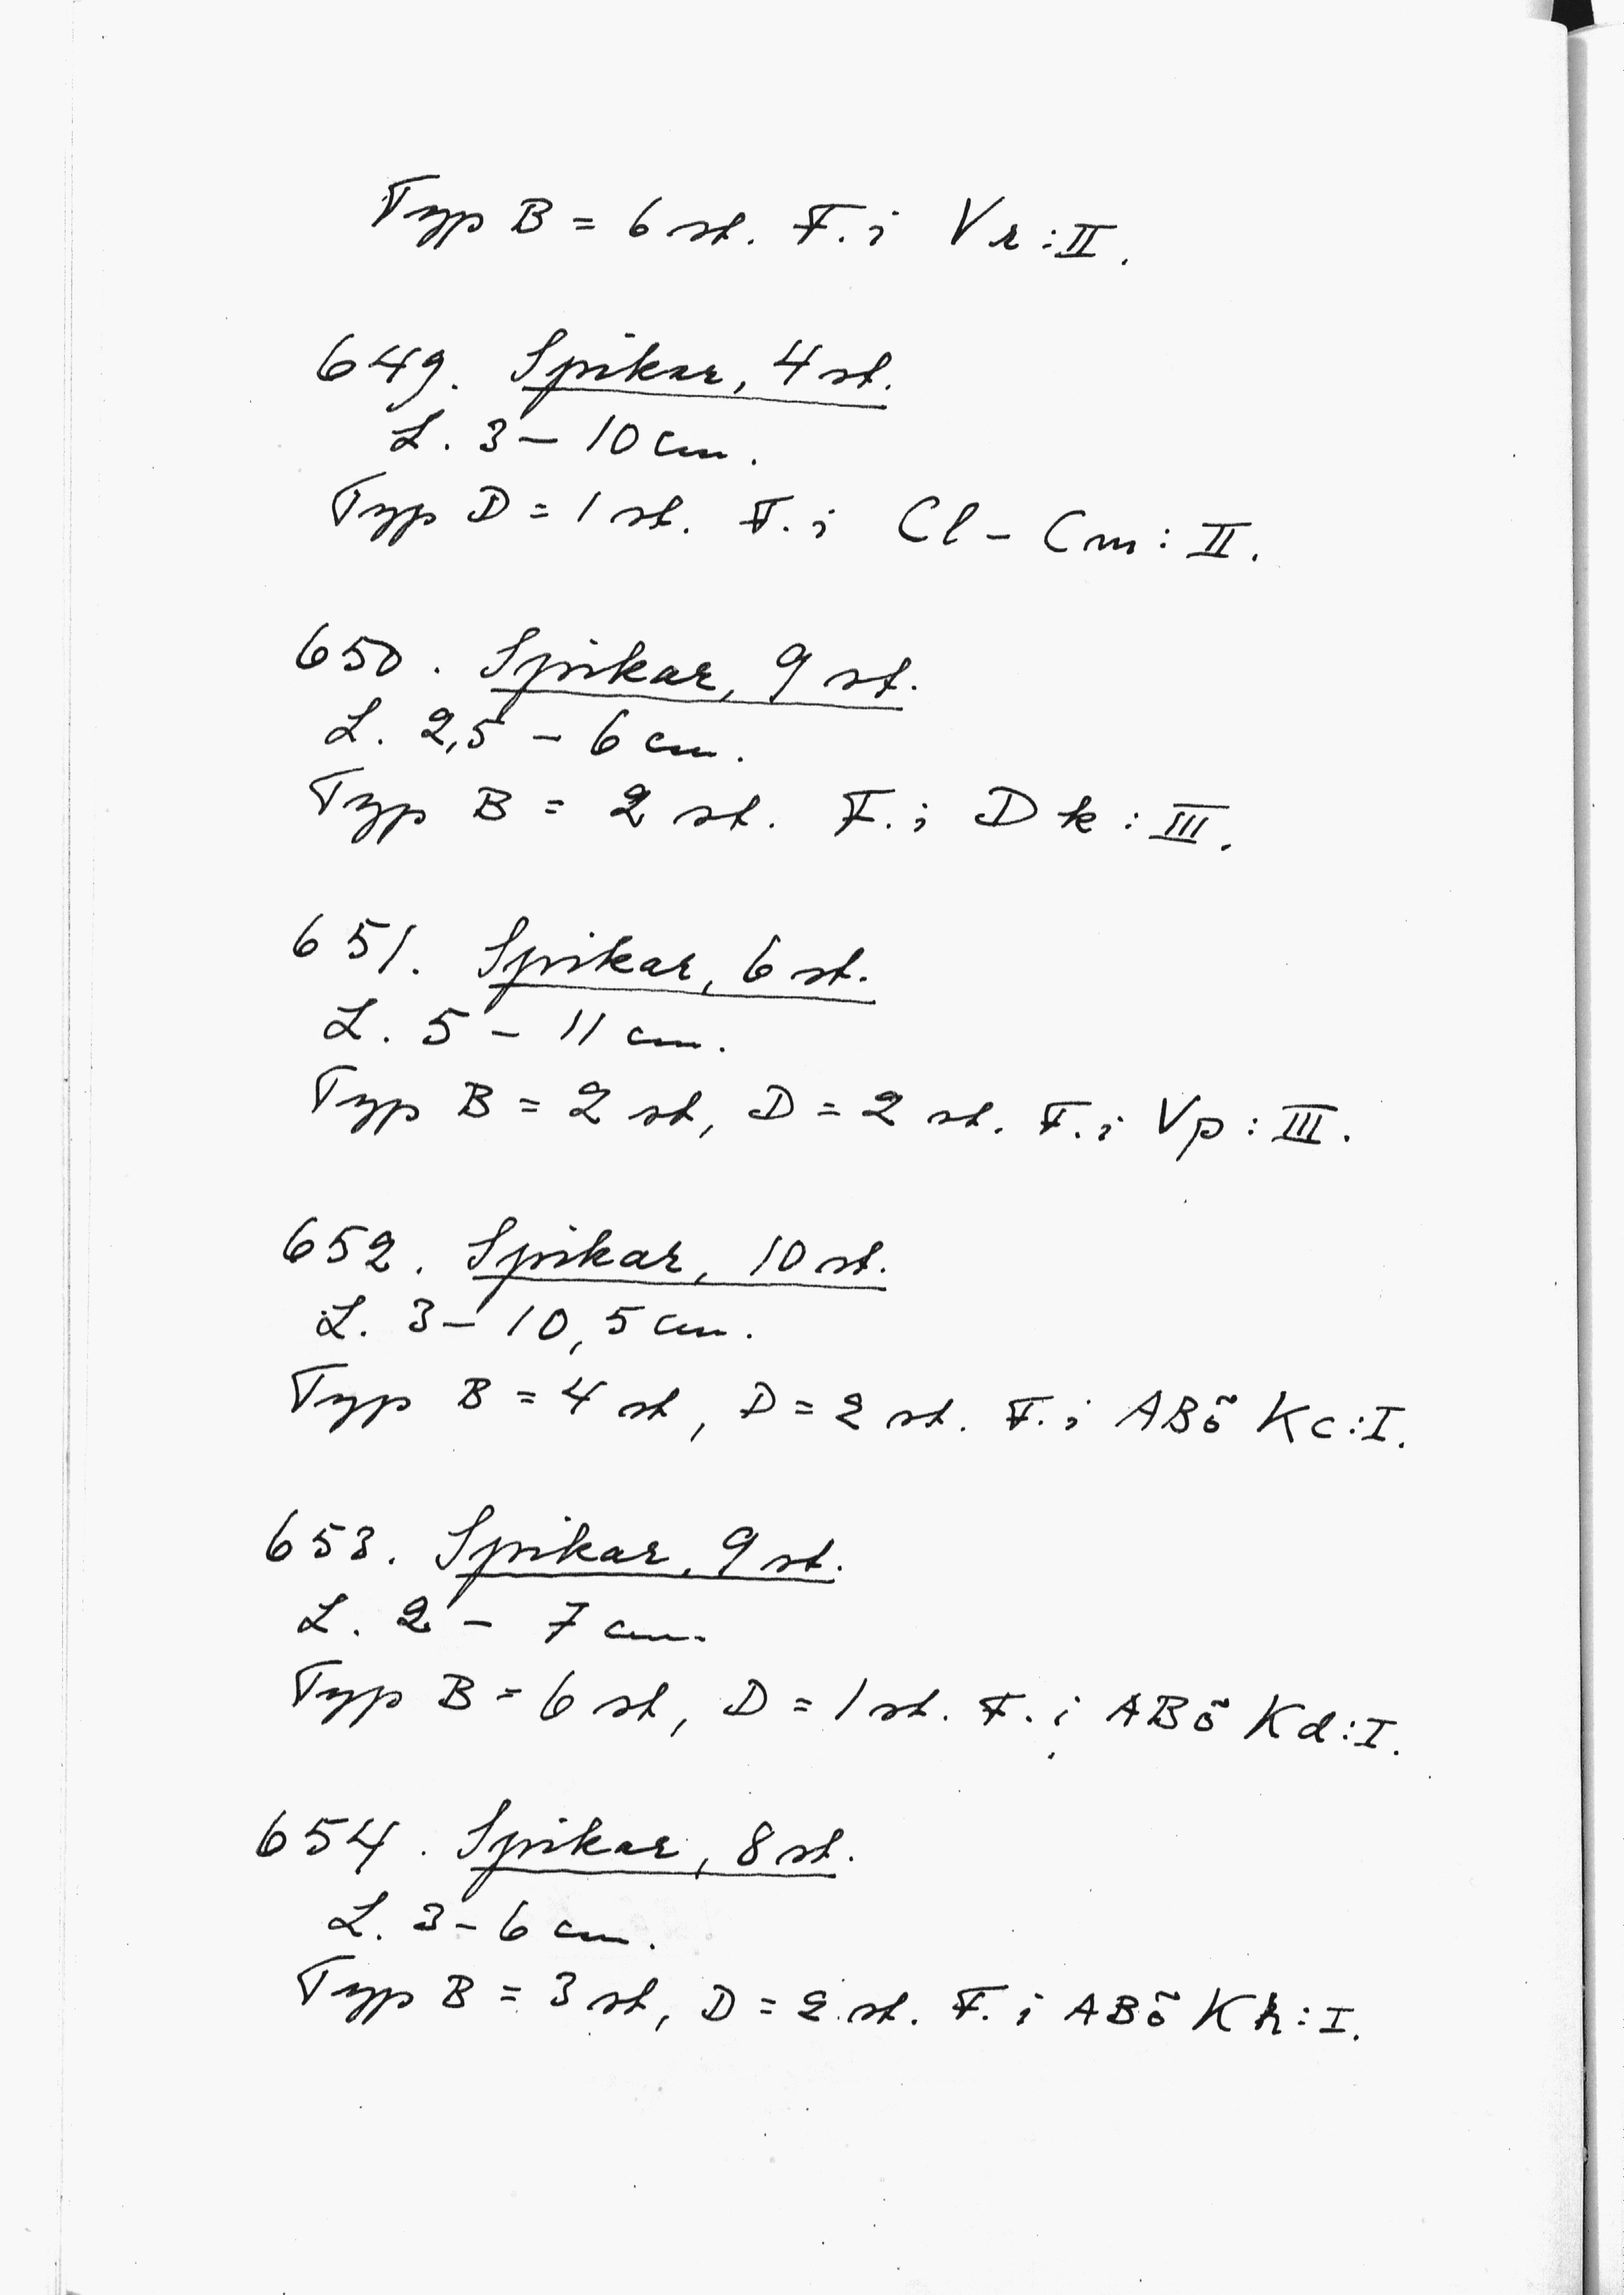 Typ B = 6 st. F. i Vr: II.
649. Spikar, 4 st.
L. 3 – 10 cm.
Typ D = 1 st. F. i Cl – Cm: II.
650. Spikar, 9 st.
L. 2,5 – 6 cm.
Typ B = 2 st. F. i Dk: III.
651. Spikar, 6 st.
L. 5 – 11 cm.
Typ B = 2 st, D = 2 st. F. i Vp: III.
652. Spikar, 10 st.
L. 3 – 10,5 cm.
Typ B = 4 st, D = 2 st. F. i ABö Kc: I.
653. Spikar, 9 st.
L. 2 – 7 cm.
Typ B = 6 st, D = 1 st. F. i ABö Kd: I.
654. Spikar, 8 st.
L. 3 – 6 cm.
Typ B = 3 st, D = 2 st. F. i ABö Kh: I.